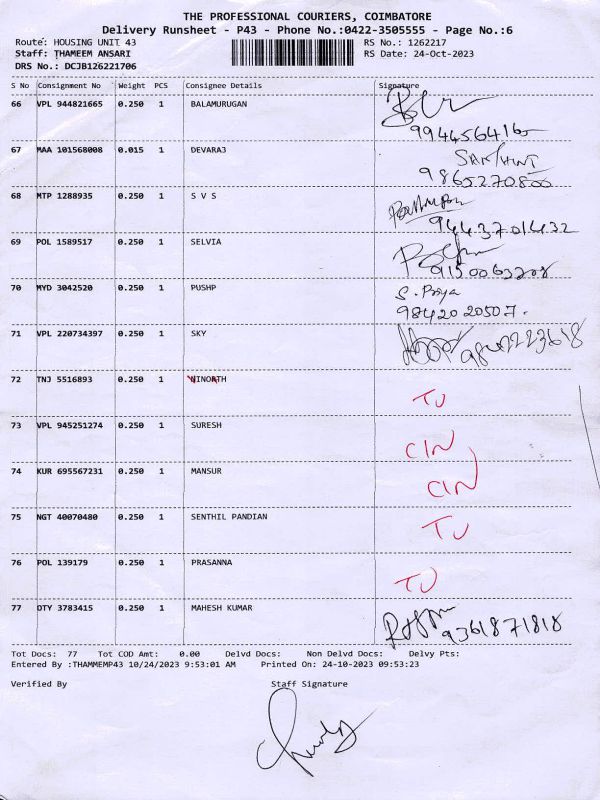 THE PROFESSIONAL COURIERS, COIMBATORE
Delivery Runsheet - P43 - Phone No.:0422-3505555 - Page No.:6
Route: HOUSING UNIT 43 RS No.: 1262217
Staff: THAMEEM ANSARI RS Date: 24-Oct-2023
DRS No.: DCJB126221706
S No Consignment No Weight PCS Consignee Details Signature
66 VPL 944821665 0.250 1 BALAMURUGAN
9944564165
67 MAA 101568008 0.015 1 DEVARAJ
9865270800
68 MTP 1288935 0.250 1 S V S
9443701432
69 POL 1589517 0.250 1 SELVIA
9150063208
70 MYD 3042520 0.250 1 PUSHP S. Priya
9842020507.
71 VPL 220734397 0.250 1 SKY
72 TNJ 5516893 0.250 1 VINOATH TJ
73 VPL 945251274 0.250 1 SURESH CIN
74 KUR 695567231 0.250 1 MANSUR CIN
75 NGT 40070480 0.250 1 SENTHIL PANDIAN TJ
76 POL 139179 0.250 1 PRASANNA TJ
77 OTY 3783415 0.250 1 MAHESH KUMAR 9361871818
Tot Docs: 77 Tot COD Amt: 0.00 Delvd Docs: Non Delvd Docs: Delvy Pts:
Entered By :THAMMEMP43 10/24/2023 9:53:01 AM Printed On: 24-10-2023 09:53:23
Verified By Staff Signature